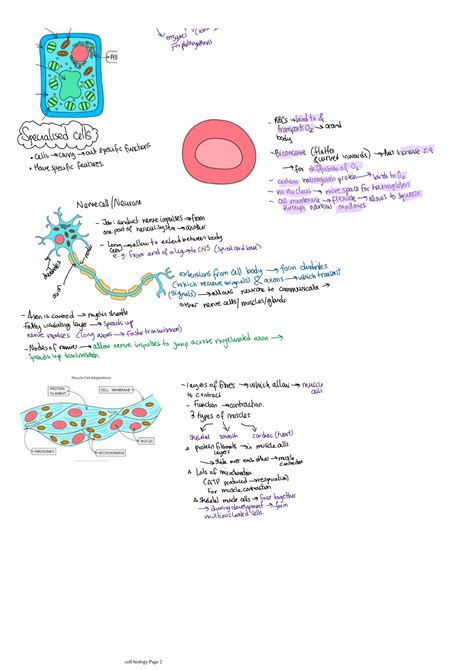 enzymes
photosynthesis
Specialised cells
• cells → carry → out specific functions
• Have specific features.
- RBCs → bind to &
transport O₂ → around
body
- Biconcave (flatter
(curved inwards) → increase S.A
→ for diffusion of O₂
- contain haemoglobin protein → binds to O₂
- no nucleus → more space for haemoglobin
- cell membrane → flexible → allows to squeeze
through narrow capillaries
Nerve cell / Neurone
- Job: conduct nerve impulses → from
one part of nervous system → another
- Long → allow to extend between body
e.g. from end of leg → to CNS (spinal cord base)
dendrites
axon
node
extensions from cell body → form dendrites
(which receive signals) & axons → which transmit
(signals) → allows neurone to communicate →
other nerve cells/muscles/glands
- Axon is covered → myelin sheath
Fatty insulating layer → speeds up
nerve impulses (long axons → faster transmission)
- Nodes of ranvier → allow nerve impulses to jump across myelinated axon →
speeds up transmission
Muscle Cell Adaptations
PROTEIN
FILAMENT
CELL MEMBRANE
RIBOSOMES
MITOCHONDRIA
NUCLEI
- layers of fibres → which allow → muscle
cells
to contract
- Function → contraction.
3 types of muscles
skeletal smooth cardiac (heart)
protein filaments → in muscle cells
layers
→ slide over each other → muscle
contraction
Lots of mitochondria
(ATP produced → respiration)
For muscle contraction
skeletal muscle cells → fuse together
→ during development → form
multinucleated cells.
cell biology Page 2